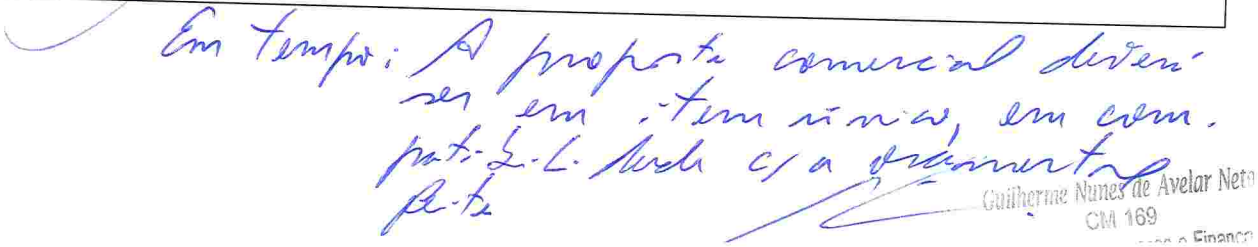 Em tempo: A proposta comercial deverá
ser em item único, em com.
patibilidade c/ a orçamento
Guilherme Nunes de Avelar Neto
CM 169